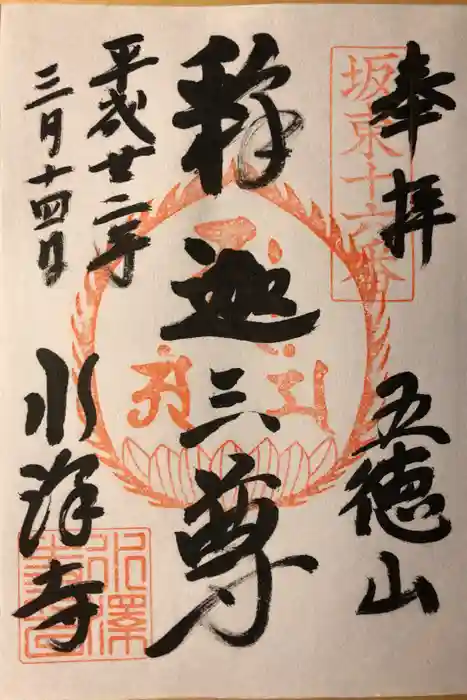 奉拝
坂東十六番
五徳山
釈迦三尊
平成廿二年
三月十四日
水澤寺
水澤寺